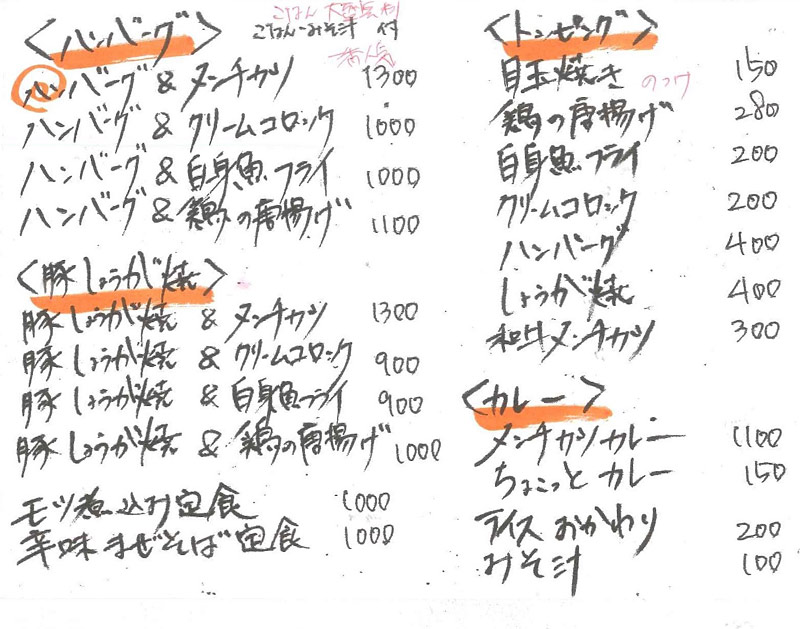 <ハンバーグ>
ごはん 大盛無料
ごはん・みそ汁 付
ハンバーグ & メンチカツ 1300
ハンバーグ & クリームコロッケ 1000
ハンバーグ & 白身魚フライ 1000
ハンバーグ & 鶏の唐揚げ 1100
<豚しょうが焼>
豚しょうが焼 & メンチカツ 1300
豚しょうが焼 & クリームコロッケ 900
豚しょうが焼 & 白身魚フライ 900
豚しょうが焼 & 鶏の唐揚げ 1000
モツ煮込み定食 1000
辛味まぜそば定食 1000
<トッピング>
目玉焼き のっけ 150
鶏の唐揚げ 280
白身魚フライ 200
クリームコロッケ 200
ハンバーグ 400
しょうが焼 400
和牛メンチカツ 300
<カレー>
メンチカツカレー 1100
ちょこっとカレー 150
ライスおかわり 200
みそ汁 100